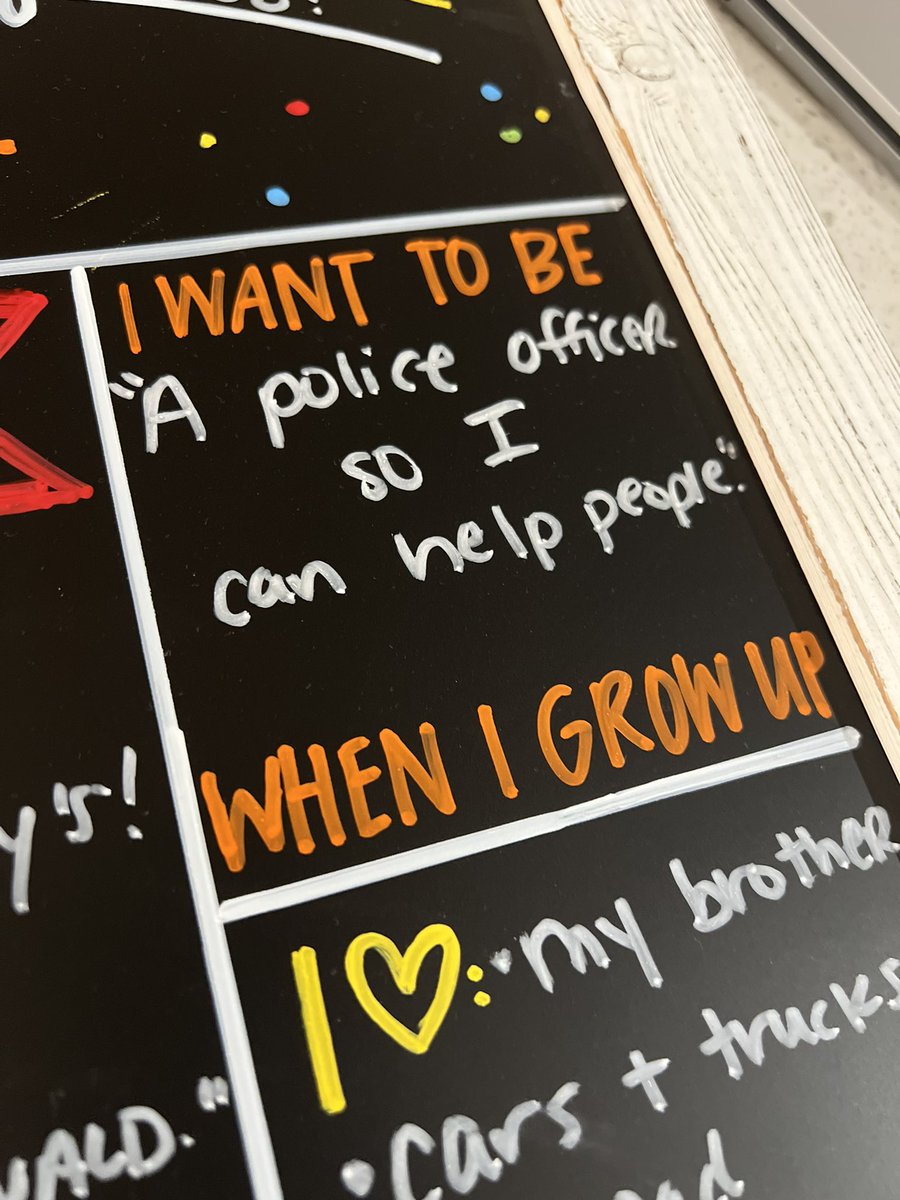 I WANT TO BE
"A police officer
so I
can help people".
WHEN I GROW UP
y's!
I ♡: • my brother
• cars + trucks
WALD."